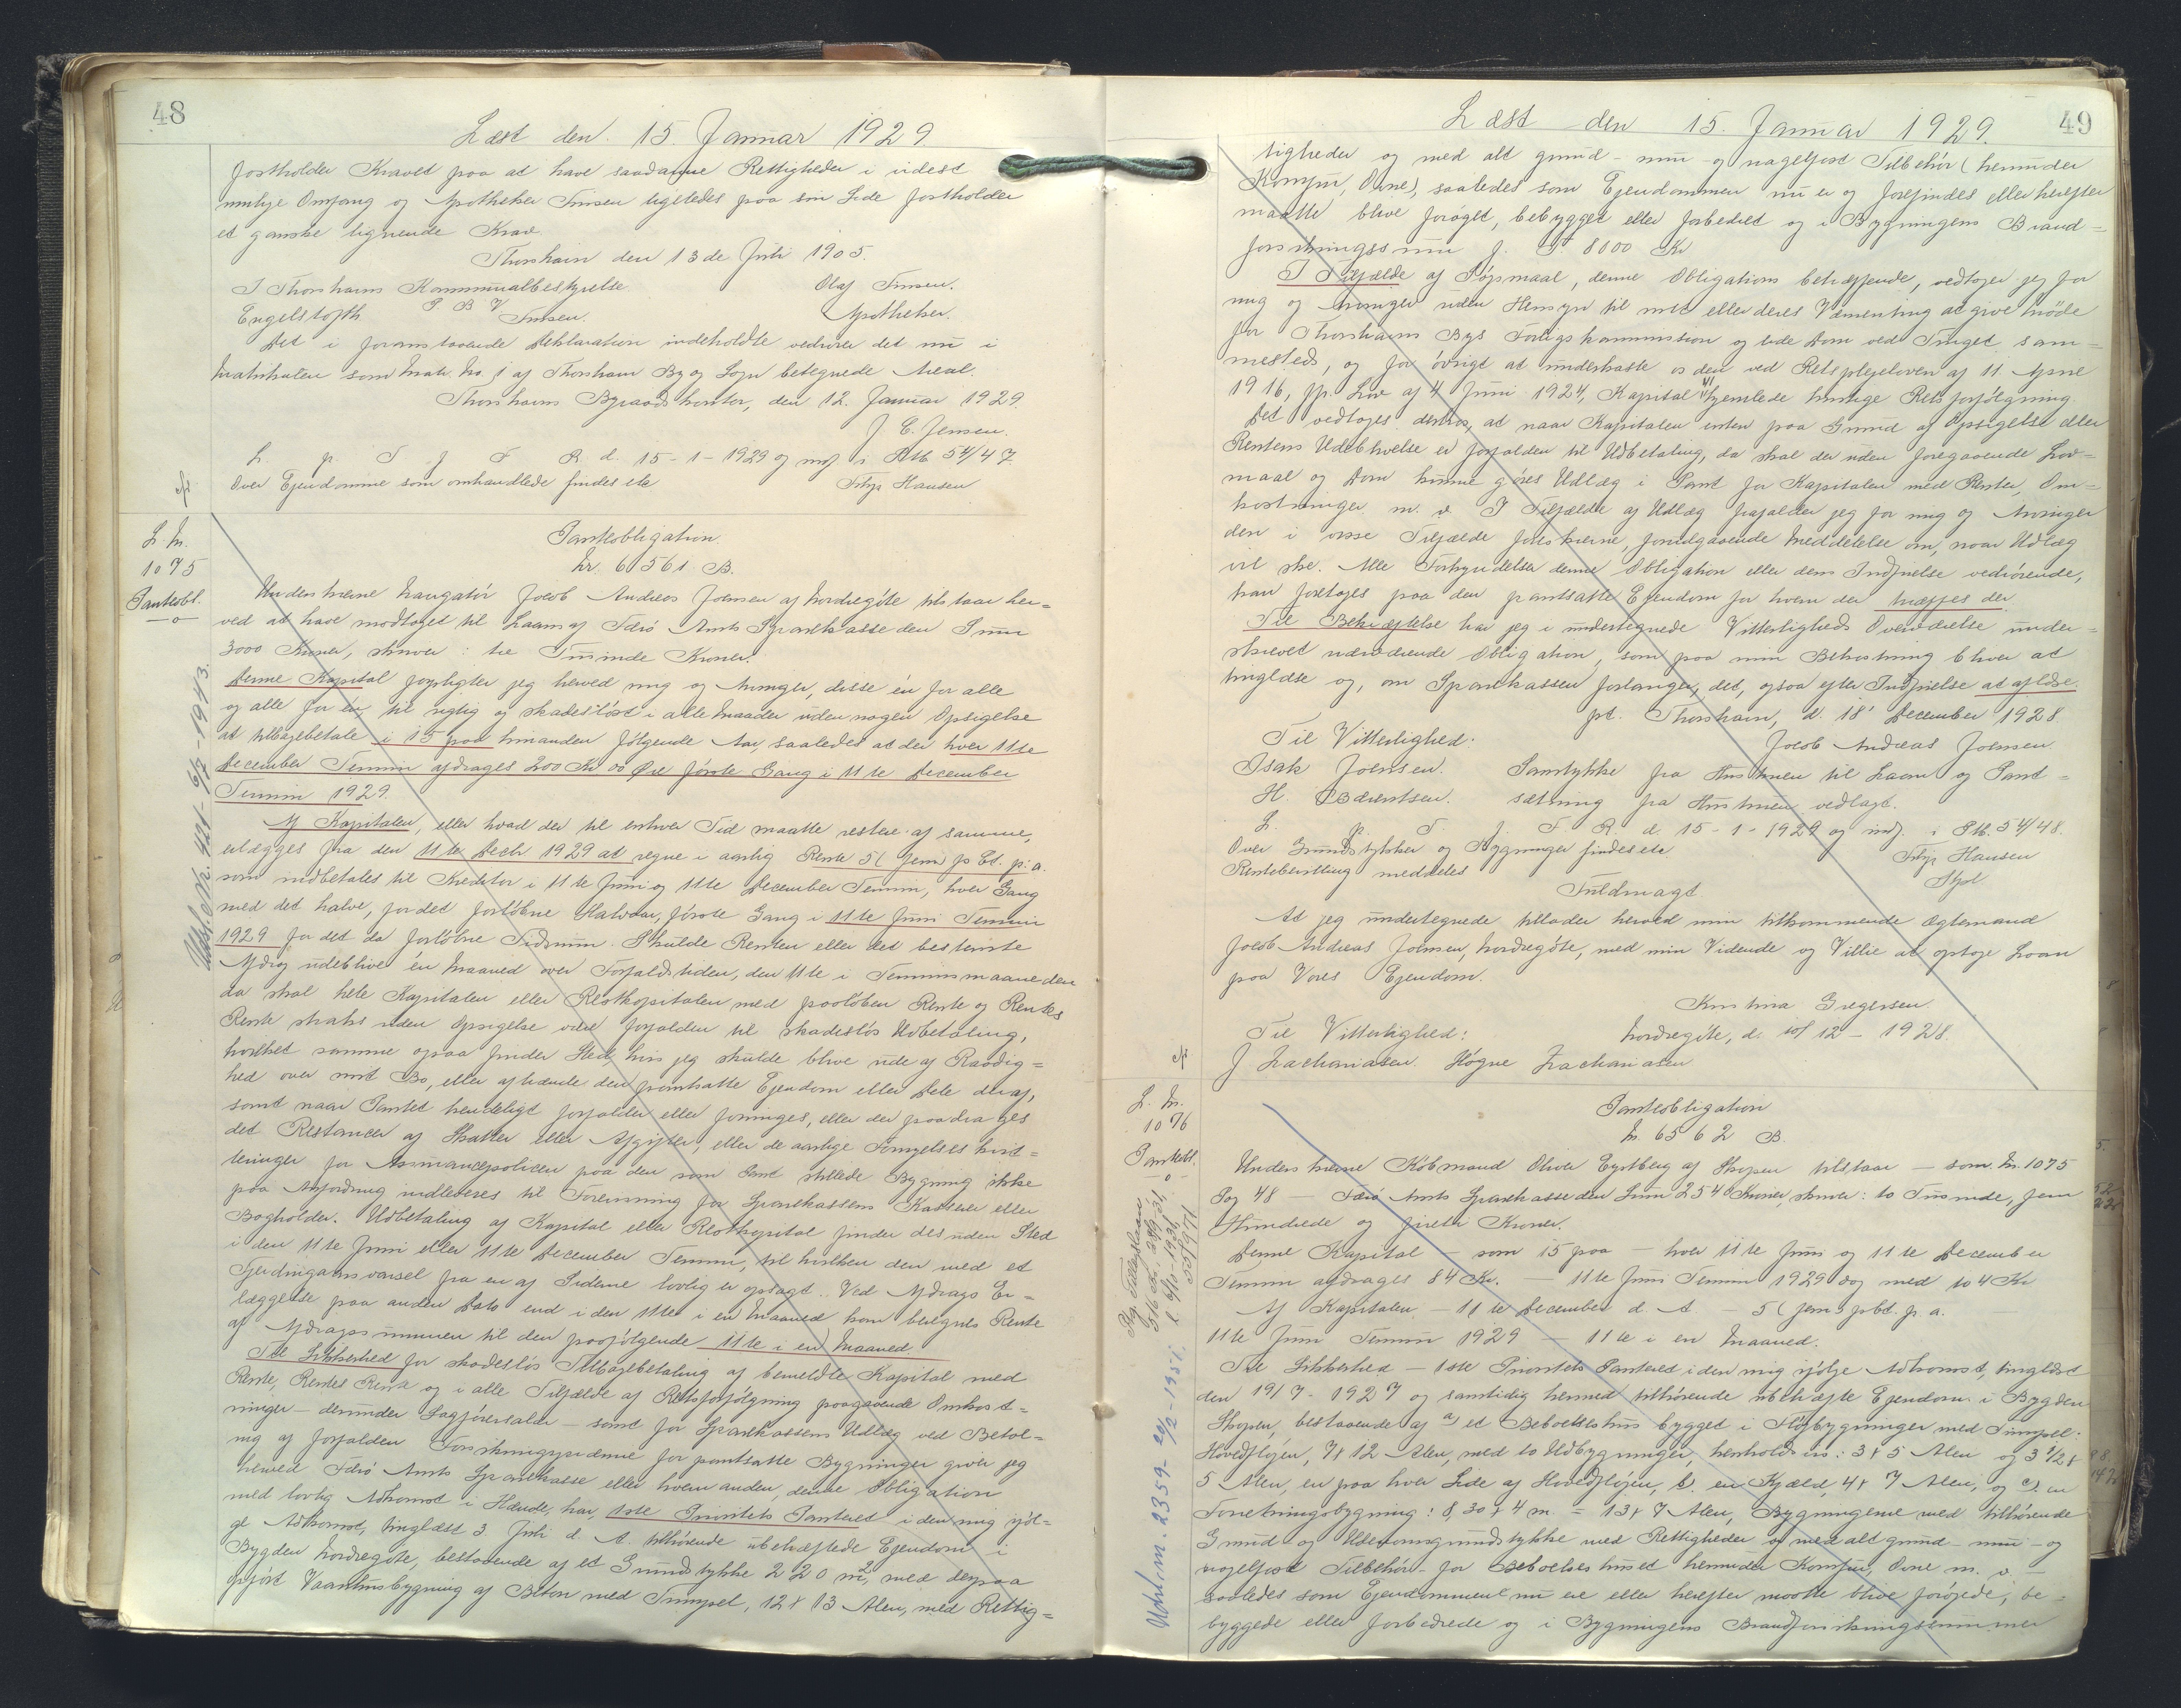 48
Læst den 15. Januar 1929.
fastholder Kravet paa at have saadanne Rettigheder i videst
mulige Omfang og Apotheker Finsen ligeledes paa sin Side fastholder
et ganske lignende Krav.
Thorshavn den 13de Juli 1905.
I Thorshavns Kommunalbestyrelse
Olaf Finsen.
Engelstofth P. B. V. Finsen.
Apotheker.
Det i foranstaaende Deklaration indeholdte vedrører det nu i
Matrikulen som Matr. No. 1 af Thorshavn By og Sogn betegnede Areal.
Thorshavns Byraadskontor, den 12. Januar 1929.
J. C. Jensen.
L. p. T. f. F. R. d. 15-1-1929 og indf. i Ptb. 54/47.
Over Ejendomme som omhandlede findes ete
Filip Hansen
L. No.
1075
Panteobl.
Panteobligation
Nr. 6561 B.
Underskrevne Navigatør Jacob Andreas Joensen af Nordregöte tilstaar her=
ved at have modtaget til Laans af Færø Amts Sparekasse den Sum
3000 Kroner, skriver: tre Tusinde Kroner.
Denne Kapital forpligter jeg herved mig og Arvinger, disse én for alle
og alle for én til rigtig og skadesløst i alle Maader uden nogen Opsigelse
at tilbagebetale i 15 paa hinanden følgende Aar, saaledes at der hver 11te
December Termin afdrages 200 Kr 00 Øre første Gang i 11te December
Termin 1929.
Af Kapitalen, eller hvad der til enhver Tid maatte restere af samme,
erlægges fra den 11te Decbr 1929 at regne i aarlig Rente 5 (fem) p Ct. p. a.
som indbetales til Kreditor i 11te Juni og 11te December Termin, hver Gang
med det halve, for det forløbne Halvaar, første Gang i 11te Juni Termin
1929 for det da forløbne Tidsrum. Skulde Renten eller det bestemte
Afdrag udeblive én Maaned over Forfaldstiden, den 11te i Terminsmaaneden
da skal hele Kapitalen eller Restkapitalen med paaløben Rente og Rentes
Rente straks uden Opsigelse være forfalden til skadesløs Udbetaling,
hvilket samme ogsaa finder Sted, hvis jeg skulde blive ude af Raadig=
hed over mit Bo, eller afhænde den pantsatte Ejendom eller Dele deraf,
samt naar Pantet hændeligt forfalder eller forringes, eller der paadrages
det Restancer af Skatter eller Afgifter, eller de aarlige Fornyelses kvit=
teringer for Assurancepolicen paa den som Pant stillede Bygning ikke
paa Anfordring indleveres til Forevisning for Sparekassens Kasserer eller
Bogholder. Udbetaling af Kapital eller Restkapital finder desuden Sted
i den 11te Juni eller 11te December Termin, til hvilken den med et
Fjerdingaars varsel fra en af Siderne lovlig er opsagt. Ved Afdrags Er=
læggelse paa anden Dato end i den 11te i en Maaned kan beregnes Rente
af Afdragssummen til den paafølgende 11te i en Maaned
Til Sikkerhed for skadesløs Tilbagebetaling af bemeldte Kapital med
Rente, Rentes Rente og i alle Tilfælde af Retsforfølgning paagaaende Omkost=
ninger - derunder Sagførersalær - samt for Sparekassens Udlæg ved Betal=
ing af forfalden Forsikringspræmie for pantsatte Bygninger giver jeg
herved Færø Amts Sparekasse eller hvem anden, denne Obligation
med lovlig Adkomst i Hænde, har, 1ste Prioritets Panteret i den mig iføl=
ge Adkomst, tinglæst 3. Juli d. A. tilhørende ubehæftede Ejendom i
Bygden Nordregöte, bestaaende af et Grundstykke 220 m², med derpaa
opført Vaaningsbygning af Beton med Timpel, 12 x 13 Alen, med Rettig=
Udsl. e. Nr. 421 - 6/7 - 1943.
49
Læst den 15. Januar 1929.
tigheder og med alt grund- mur- og nagelfast Tilbehör (herunder
Komfur, Ovne), saaledes som Ejendommen nu er og forefindes eller herefter
maatte blive forøget, bebygget eller forbedret og i Bygningens Brand=
forsikringssum p. T. 8000 Kr
I Tilfælde af Søgsmaal, denne Obligations betræffende, vedtager jeg for
mig og Arvinger uden Hensyn til mit eller deres Værneting at give Møde
for Thorshavns Bys Forligskommission og lide Dom ved Tinget sam=
mesteds, og for övrigt at underkaste os den ved Retsplejeloven af 11 April
1916, jfr. Lov af 4 Juni 1924, Kapital VI hjemlede hurtige Retsforfølgning.
Det vedtages derhos, at naar Kapitalen enten paa Grund af Opsigelse eller
Rentens Udeblivelse er forfalden til Udbetaling, da skal der uden foregaaende Lov=
maal og Dom kunne gøres Udlæg i Pant for Kapitalen med Renter, Om=
kostninger m. v. I Tilfælde af Udlæg frafalder jeg for mig og Arvinger
den i visse Tilfælde foreskrevne, forudgaaende Meddelelse om, naar Udlæg
vil ske. Alle Forkyndelser denne Obligation eller dens Indfrielse vedrørende,
kan foretages paa den pantsatte Ejendom for hvem der træffes der.
Til Bekræftelse har jeg i undertegnede Vitterligheds Overværelse under=
skrevet nærværende Obligation, som paa min Bekostning bliver at
tinglæse og, om Sparekassen forlanger det, ogsaa efter Indfrielse at aflæse.
pt. Thorshavn, d. 18' December 1928.
Til Vitterlighed:
Jacob Andreas Joensen
Isak Joensen.
Samtykke fra Hustruen til Laan og Pant=
H. Bærentsen.
sætning fra Hustruen vedlagt.
L. p. T. f. F. R. d. 15-1-1929 og indf. i Ptb. 54/48.
Over Grundstykker og Bygninger findes ete
Filip Hansen
Rentebevilling meddeles
Fuldmagt
At jeg undertegnede tillader herved min tilkommende Ægtemand
Jacob Andreas Joensen, Nordregöte, med min Vidende og Villie at optage Laan
paa Vores Ejendom.
Kristina Gregersen.
Til Vitterlighed:
Nordregöte, d. 10/12 - 1928.
J. Zachariasen. Høgne Zachariasen
L. No.
1076
Panteobl.
Panteobligation
N. 6562 B.
Underskrevne Købmand Oliver Eystberg af Skopen tilstaar — som No. 1075
Pag 48 — Færö Amts Sparekasse den Sum 2540 Kroner, skriver: to Tusinde, fem
Hundrede og fireti Kroner.
Denne Kapital — som 15 paa — hver 11te Juni og 11te December
Termin afdrages 84 Kr. — 11te Juni Termin 1929 dog med 104 Kr
Af Kapitalen — 11te December d. A. — 5 (fem) pCt. p. a.
11te Juni Termin 1929 — 11te i en Maaned.
Til Sikkerhed — 1ste Prioritets Panteret i den mig ifølge Adkomst, tinglæst
den 19/7 - 1927 og samtidig hermed tilhørende ubehæfte Ejendom i Bygden
Skopen, bestaaende af a) et Beboelseshus bygget i Fløjbygninger med Timpel:
Hovedfløjen, 7 x 12 Alen, med to Udbygninger, henholdsvis: 3 x 5 Alen og 3 1/2 x
5 Alen, en paa hver Side af Hovedfløjen, b). en Kjæld, 4 x 7 Alen, og c). en
Forretningsbygning: 8,30 x 4 m. = 13 x 7 Alen, Bygningerne med tilhørende
Grund og Udenomsgrundstykke med Rettigheder og med alt grund- mur- og
nagelfast Tilbehör - for Beboelseshuset herunder Komfur, Ovne m. v. —
saaledes som Ejendommene nu ere eller herefter maatte blive forögede, be=
byggede eller forbedrede og i Bygningens Brandforsikringssummer
Udsl. e. n. 2359 - 20/2 - 1951.